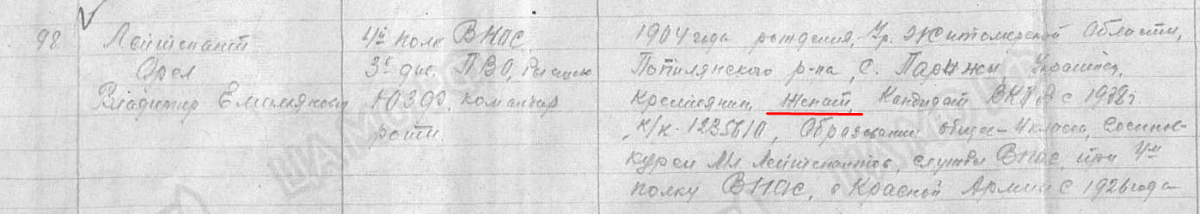 98 Лейтенант 4й полк ВНОС, 1904 года рождения, Ур. Житомирской Области,
Орел 3й див. ПВО, бывшего Попилянского р-на, с. Парижы, Украинец,
Владимир Емельянович ЮЗФО, командир Крестьянин, Женат, Кандидат ВКП/б с 1938г
роты. к/к-1235610, Образование общее-4 класса, Военное-
курсы Мл Лейтенантов, службы ВНОС, при 4м
полку ВНОС, в Красной Армии с 1926 года